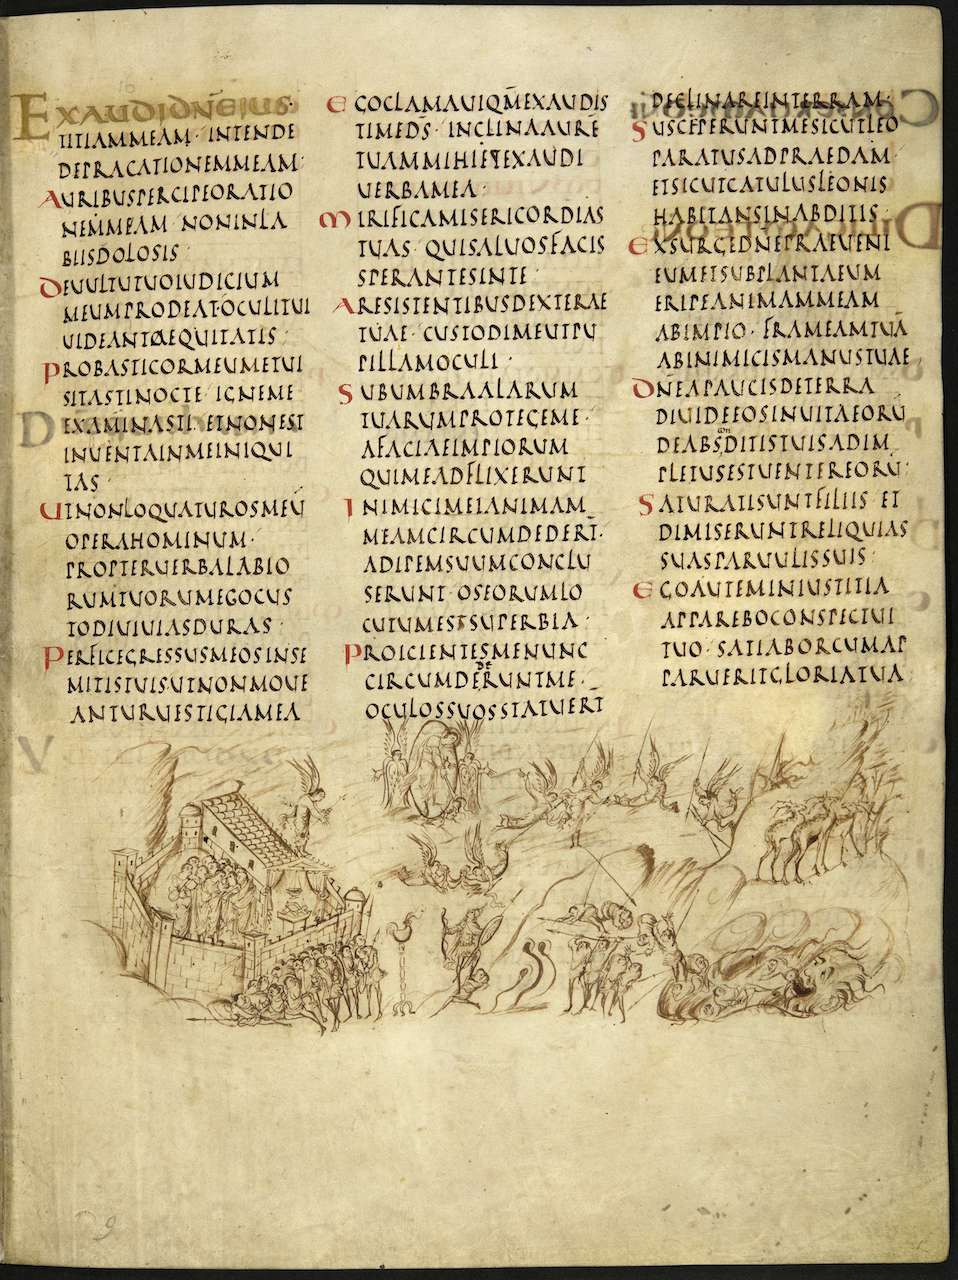 EXAUDIDN̄EIUS
TITIAMMEAM· INTENDE
DEPRACATIONEMMEAM·
AURIBUSPERCIPEORATIO
NEMMEAM NONINLA
BIISDOLOSIS
DEUULTUTUOIUDICIUM
MEUMPRODEAT·OCULITUI
UIDEANTAEQUITATIS·
PROBASTICORMEUMETUI
SITASTINOCTE· IGNEME
EXAMINASTI· ETNONEST
INUENTAINMEINIQUI
TAS·
UTNONLOQUATUROSMEŪ
OPERAHOMINUM·
PROPTERUERBALABIO
RUMTUORUMEGOCUS
TODIUIUIASDURAS·
PERFICEGRESSUSMEOSINSE
MITISTUISUTNONMOUE
ANTURUESTIGIAMEA
EGOCLAMAUIQM̄EXAUDIS
TIMED̄S· INCLINAAURĒ
TUAMMIHIETEXAUDI
UERBAMEA·
MIRIFICAMISERICORDIAS
TUAS· QUISALUOSFACIS
SPERANTESINTE·
ARESISTENTIBUSDEXTERAE
TUAE· CUSTODIMEUTPU
PILLAMOCULI·
SUBUMBRAALARUM
TUARUMPROTEGEME·
AFACIAEIMPIORUM
QUIMEADFLIXERUNT
INIMICIMEIANIMAM
MEAMCIRCUMDEDERT̄·
ADIPEMSUUMCONCLU
SERUNT·OSEORUMLO
CUTUMESTSUPERBIA·
PROICIENTESMENUNC
de
CIRCUMDERUNTME·
OCULOSSUOSSTATUERT̄
DECLINAREINTERRAM·
SUSCEPERUNTMESICUTLEO
PARATUSADPRAEDAM·
ETSICUTCATULUSLEONIS
HABITANSINABDITIS
EXSURGED̄NEPRAEUENI
EUMETSUBPLANTAEUM
ERIPEANIMAMMEAM
ABIMPIO· FRAMEAMTUĀ
ABINIMICISMANUSTUAE
DN̄EAPAUCISDETERRA
DIUIDEEOSINUITAEORŪ
con
DEABSDITISTUISADIM
PLETUSESTUENTEREORŪ·
SATURATISUNTFILIIS ET
DIMISERUNTRELIQUIAS
SUASPARUULISSUIS·
EGOAUTEMINIUSTITIA
APPAREBOCONSPECTUI
TUO· SATIABORCUMAP
PARUERITGLORIATUA
9